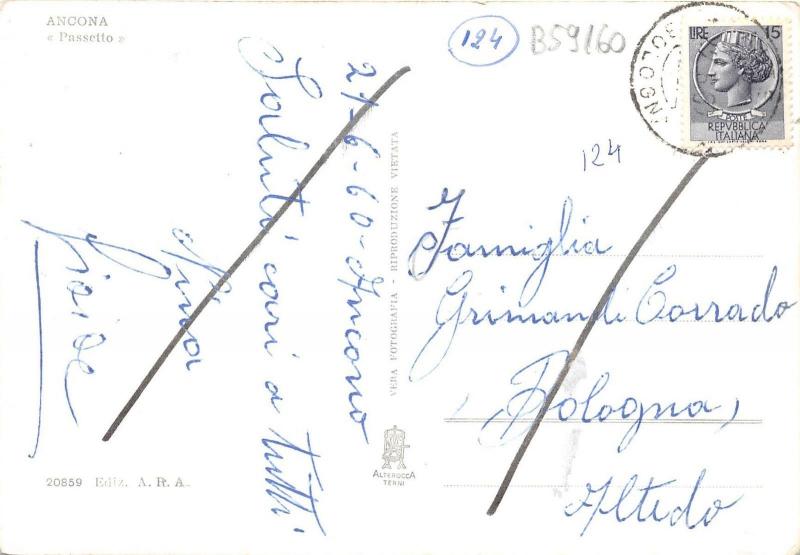 ANCONA
« Passetto »
124
B59/60
LIRE 15
POSTE
REPVBBLICA
ITALIANA
124
21-6-60-Ancona
Saluti cari a tutti
Nina
VERA FOTOGRAFIA - RIPRODUZIONE VIETATA
Famiglia
Grimandi Corrado
(Bologna)
Altedo
ALTEROCCA
TERNI
20859 Ediz. A. R. A.